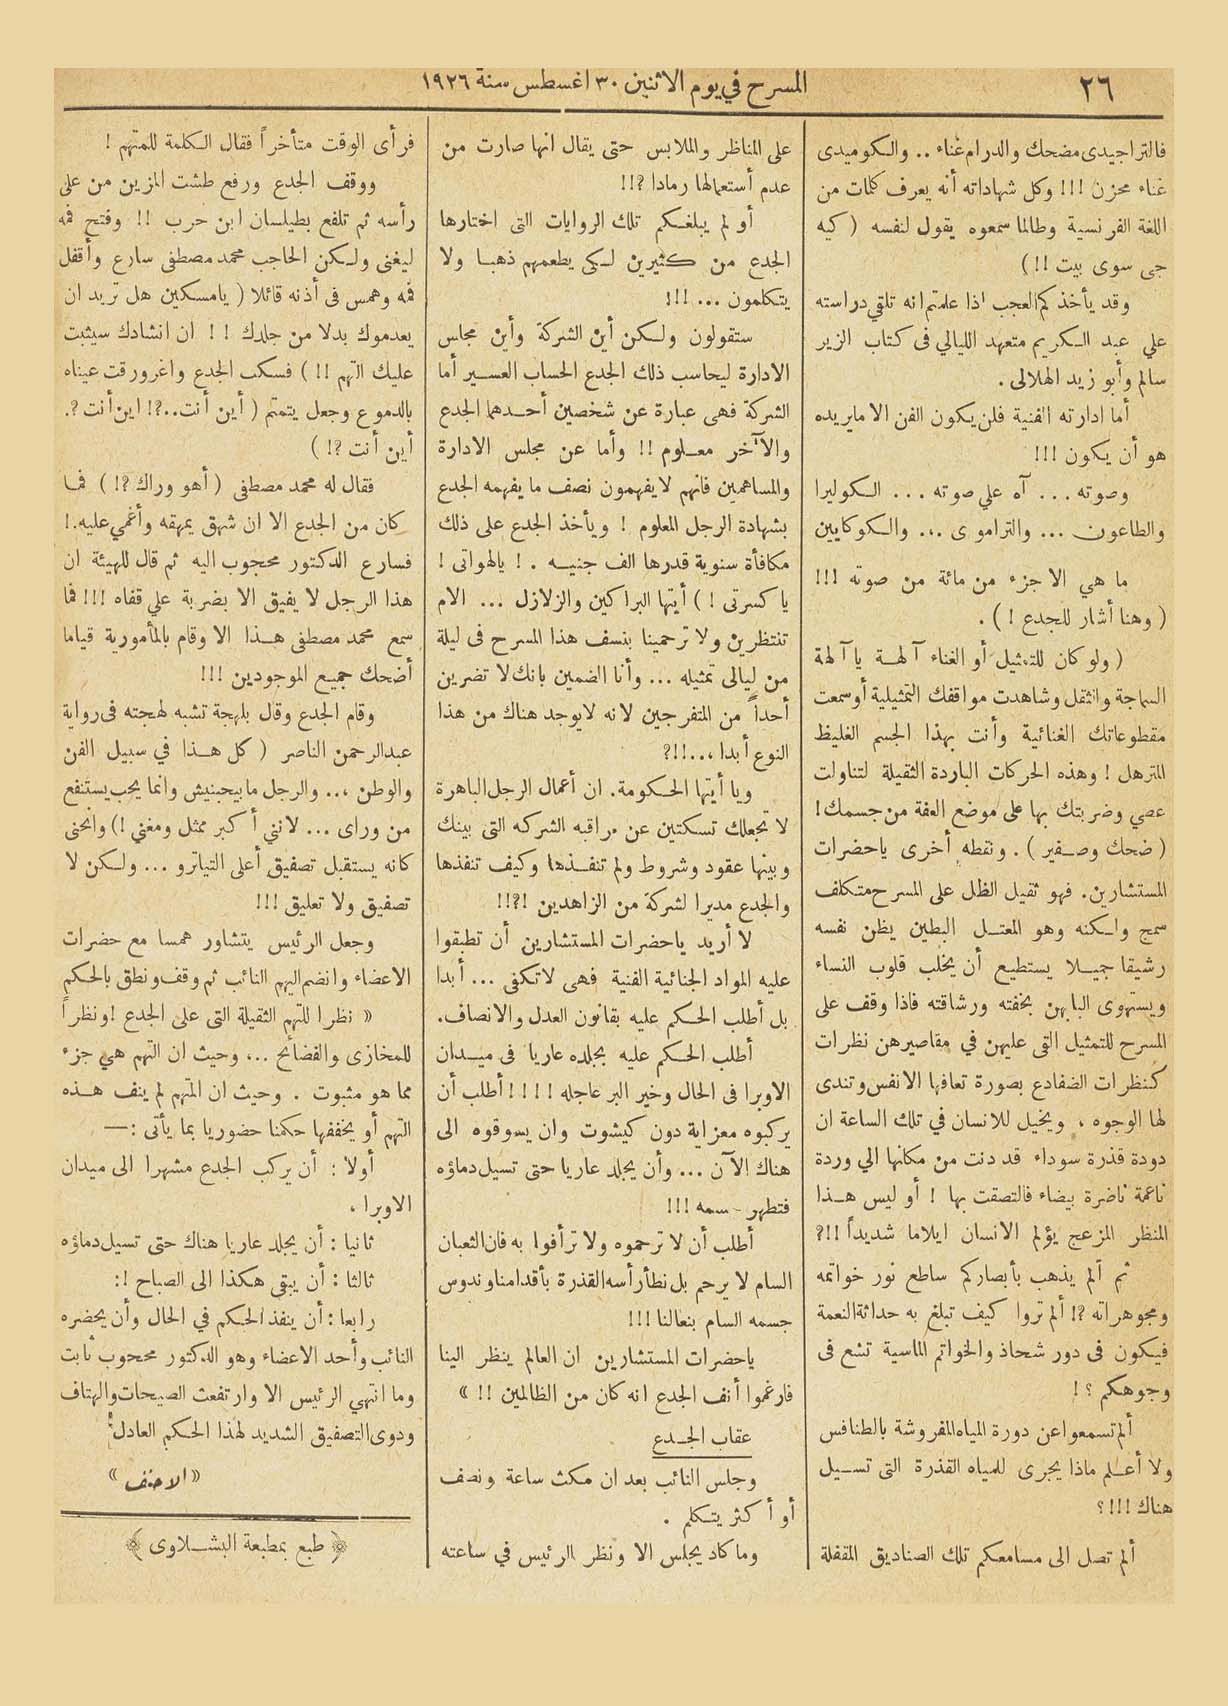 ٢٦
المسرح في يوم الاثنين ٣٠ اغسطس سنة ١٩٢٦
فالتراجيدى مضحك والدرام غناء .. والكوميدى
غناء محزن !!! وكل شهاداته أنه يعرف كلمات من
اللغة الفرنسية وطالما سمعوه يقول لنفسه ( كيه
جى سوى بيت !! )
وقد يأخذكم العجب اذا علمتم انه تلقي دراسته
علي عبد الكريم متعهد الليالي فى كتاب الزير
سالم وأبو زيد الهلالى .
أما ادارته الفنية فلن يكون الفن الا مايريده
هو أن يكون !!!
وصوته ... آه علي صوته ... الكوليرا
والطاعون ... والتراموى ... والكوكايين
ما هي الا جزء من مائة من صوته !!!
( وهنا أشار للجدع ! ) .
( ولو كان للتمثيل أو الغناء آلهة يا آلهة
السماجة واثقل وشاهدت مواقفك التمثيلية أو سمعت
مقطوعاتك الغنائية وأنت بهذا الجسم الغليظ
المترهل ! وهذه الحركات الباردة الثقيلة لتناولت
عصي وضربتك بها على موضع العفة من جسمك !
( ضحك وصفير ) . ونقطه أخرى ياحضرات
المستشارين . فهو ثقيل الظل على المسرح متكلف
سمج ولكنه وهو المعتل البطين يظن نفسه
رشيقا جميلا يستطيع أن يخلب قلوب النساء
ويستهوى البابهن بخفته ورشاقته فاذا وقف على
المسرح للتمثيل التى عليهن في مقاصيرهن نظرات
كنظرات الضفادع بصورة تعافها الانفس وتندى
لها الوجوه ، ويخيل للانسان في تلك الساعة ان
دودة قذرة سوداء قد دنت من مكانها الي وردة
ناعمة ناضرة بيضاء فالتصقت بها ! أو ليس هذا
المنظر المزعج يؤلم الانسان ايلاما شديداً !!؟
ثم ألم يذهب بأبصاركم ساطع نور خواتمه
ومجوهراته ؟! ألم تروا كيف تبلغ به حداثة النعمة
فيكون فى دور شحاذ والخواتم الماسية تشع فى
وجوهكم ؟ !
ألم تسمعوا عن دورة المياه المفروشة بالطنافس
ولا أعلم ماذا يجرى للمياه القذرة التى تسيل
هناك !!! ؟
ألم تصل الى مسامعكم تلك الصناديق المقفلة
على المناظر والملابس حتى يقال انها صارت من
عدم أستعمالها رمادا ؟!!
أو لم يبلغكم تلك الروايات التى اختارها
الجدع من كثيرين لكى يطعمهم ذهبا ولا
يتكلمون ... !!!
ستقولون ولكن أين الشركة وأين مجلس
الادارة ليحاسب ذلك الجدع الحساب العسير أما
الشركة فهى عبارة عن شخصين أحدهما الجدع
والآخر معلوم !! وأما عن مجلس الادارة
والمساهمين فانهم لا يفهمون نصف ما يفهمه الجدع
بشهادة الرجل المعلوم ! ويأخذ الجدع على ذلك
مكافأة سنوية قدرها الف جنيه . ! يالهواتى !
يا كسرتى ! ) أيتها البراكين والزلازل ... الام
تنتظرين ولا ترحمينا بنسف هذا المسرح فى ليلة
من ليالى تمثيله ... وأنا الضمين بانك لا تضرين
أحداً من المتفرجين لانه لايوجد هناك من هذا
النوع أبدا ...!!؟
ويا أيتها الحكومة . ان أعمال الرجل الباهرة
لا تجعلك تسكتين عن مراقبه الشركه التى بينك
وبينها عقود وشروط ولم تنفذها وكيف تنفذها
والجدع مديرا لشركة من الزاهدين !؟!!
لا أريد ياحضرات المستشارين أن تطبقوا
عليه المواد الجنائية الفنية فهى لاتكفى ... أبدا
بل أطلب الحكم عليه بقانون العدل والانصاف.
أطلب الحكم عليه بجلده عاريا فى ميدان
الاوبرا فى الحال وخير البر عاجله !!!! أطلب أن
يركبوه معزاية دون كيشوت وان يسوقوه الى
هناك الآن ... وأن يجلد عاريا حتى تسيل دماؤه
فتطهر سمه !!!
أطلب أن لا ترحموه ولا ترأفوا به فان الثعبان
السام لا يرحم بل نطأ رأسه القذرة بأقدامنا وندوس
جسمه السام بنعالنا !!!
ياحضرات المستشارين ان العالم ينظر الينا
فارغموا أنف الجدع انه كان من الظالمين !! »
عقاب الجدع
وجلس النائب بعد ان مكث ساعة ونصف
أو أكثر يتكلم .
وما كاد يجلس الا ونظر الرئيس في ساعته
فرأى الوقت متأخراً فقال الكلمة للمتهم !
ووقف الجدع ورفع طشت المزين من على
رأسه ثم تلفع بطيلسان ابن حرب !! وفتح فمه
ليغنى ولكن الحاجب محمد مصطفى سارع وأقفل
فمه وهمس فى أذنه قائلا ( يامسكين هل تريد ان
يعدموك بدلا من جلدك !! ان انشادك سيثبت
عليك التهم !! ) فسكت الجدع واغرورقت عيناه
بالدموع وجعل يتمتم ( أين أنت..؟! اين أنت ؟.
أين أنت ؟! )
فقال له محمد مصطفى ( أهو وراك ؟! ) فما
كان من الجدع الا ان شهق يمهقه وأغمي عليه.!
فسارع الدكتور محجوب اليه ثم قال للهيئة ان
هذا الرجل لا يفيق الا بضربة علي قفاه !!! فما
سمع محمد مصطفى هذا الا وقام بالمأمورية قياما
أضحك جميع الموجودين !!!
وقام الجدع وقال بلهجة تشبه لهجته فى رواية
عبدالرحمن الناصر ( كل هذا في سبيل الفن
والوطن ... والرجل مابيجبنيش وانما يجب يستنفع
من وراى ... لانني أكبر ممثل ومغني ! ) وانحنى
كانه يستقبل تصفيق أعلى التياترو ... ولكن لا
تصفيق ولا تعليق !!!
وجعل الرئيس يتشاور همسا مع حضرات
الاعضاء وانضم اليهم النائب ثم وقف ونطق بالحكم
« نظرا للتهم الثقيلة التى على الجدع ! ونظراً
للمخازى والفضائح ... وحيث ان التهم هي جزء
مما هو مثبوت . وحيث ان المتهم لم ينف هذه
التهم أو يخففها حكمنا حضوريا بما يأتى :—
أولا : أن يركب الجدع مشهرا الى ميدان
الاوبرا ،
ثانيا : أن يجلد عاريا هناك حتى تسيل دماؤه
ثالثا : أن يبقى هكذا الى الصباح !:
رابعا : أن ينفذ الحكم في الحال وأن يحضره
النائب وأحد الاعضاء وهو الدكتور محجوب ثابت
وما انتهي الرئيس الا وارتفعت الصيحات والهتاف
ودوى التصفيق الشديد لهذا الحكم العادل !
« الاحنف »
﴿ طبع بمطبعة البشلاوى ﴾